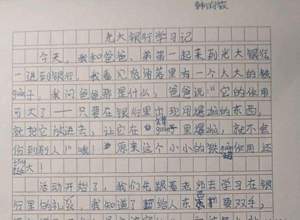 光大银行学习记
今天,我和爸爸、弟弟一起来到光大银行
一进到银行,我看见角落里有一个大大的铁
我问爸爸那是什么,爸爸说:"它的作用
可大了——只要在银行里出现用爆炸的东西,
就把它放进去,让它在里爆炸,就不会
伤到别人。"哦!原来这个小小的铁作用还
大!
活动开始了,我们先跟着老师去学习在银
行里的礼仪,我知道了给人东西要双手,